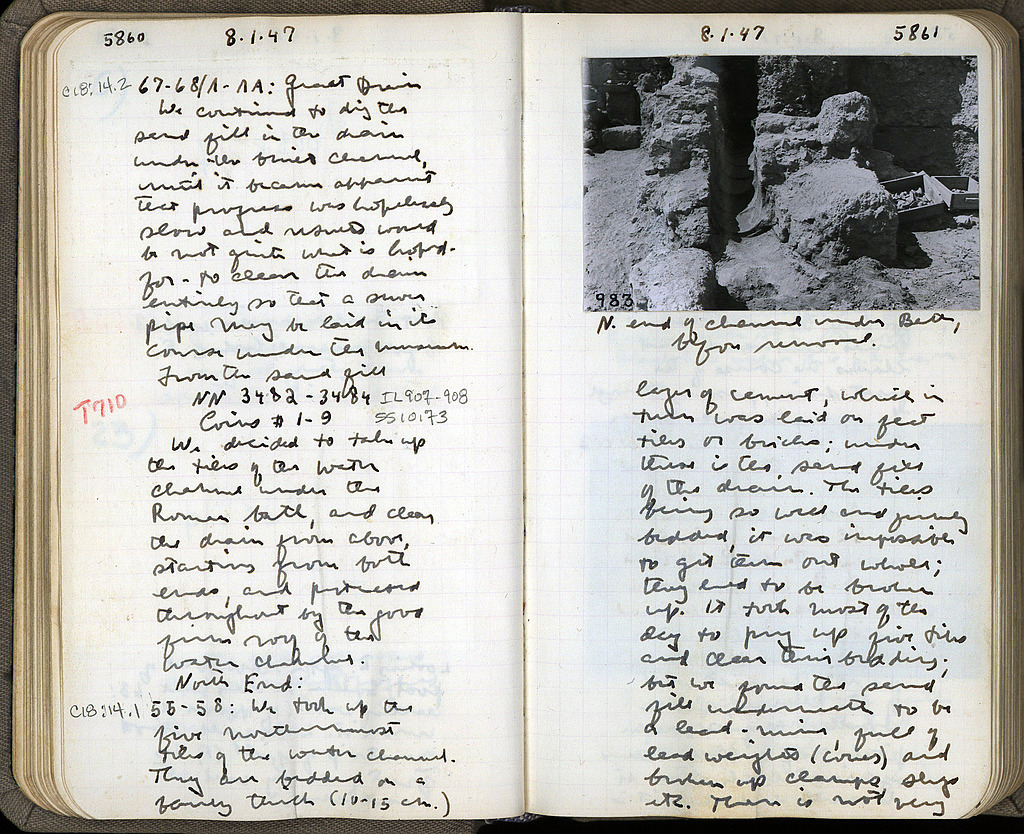 5860 8·1·47
C18:14.2 67-68/Λ-ΛA: Great Drain
We continued to dig the
sand fill in the drain
under the tiled channel,
until it became apparent
that progress was hopelessly
slow and results would
be not quite what is hoped-
for - to clear the drain
entirely so that a sewer
pipe may be laid in its
course under the museum.
From the sand fill
T710 NN 3482-3484 IL907-908
Coins # 1-9 SS10173
We decided to take up
the tiles of the water
channel under the
Roman bath, and clear
the drain from above,
starting from both
ends, and protected
throughout by the good
firm roof of the
water channel.
North End:
C18:14.1 55-58: We took up the
five northernmost
tiles of the water channel.
They are bedded on a
fairly thick (10-15 cm.)
8·1·47 5861
983
N. end of channel under Bath,
before removal.
layer of cement, which in
turn was laid on flat
tiles or bricks; under
these is the sand fill
of the drain. The tiles
being so well and firmly
bedded, it was impossible
to get them out whole;
they had to be broken
up. It took most of the
day to pry up five tiles
and clear their bedding;
but we found the sand
fill underneath to be
a lead-mine, full of
lead weights (cones) and
broken up clamps, slugs
etc. There is not very